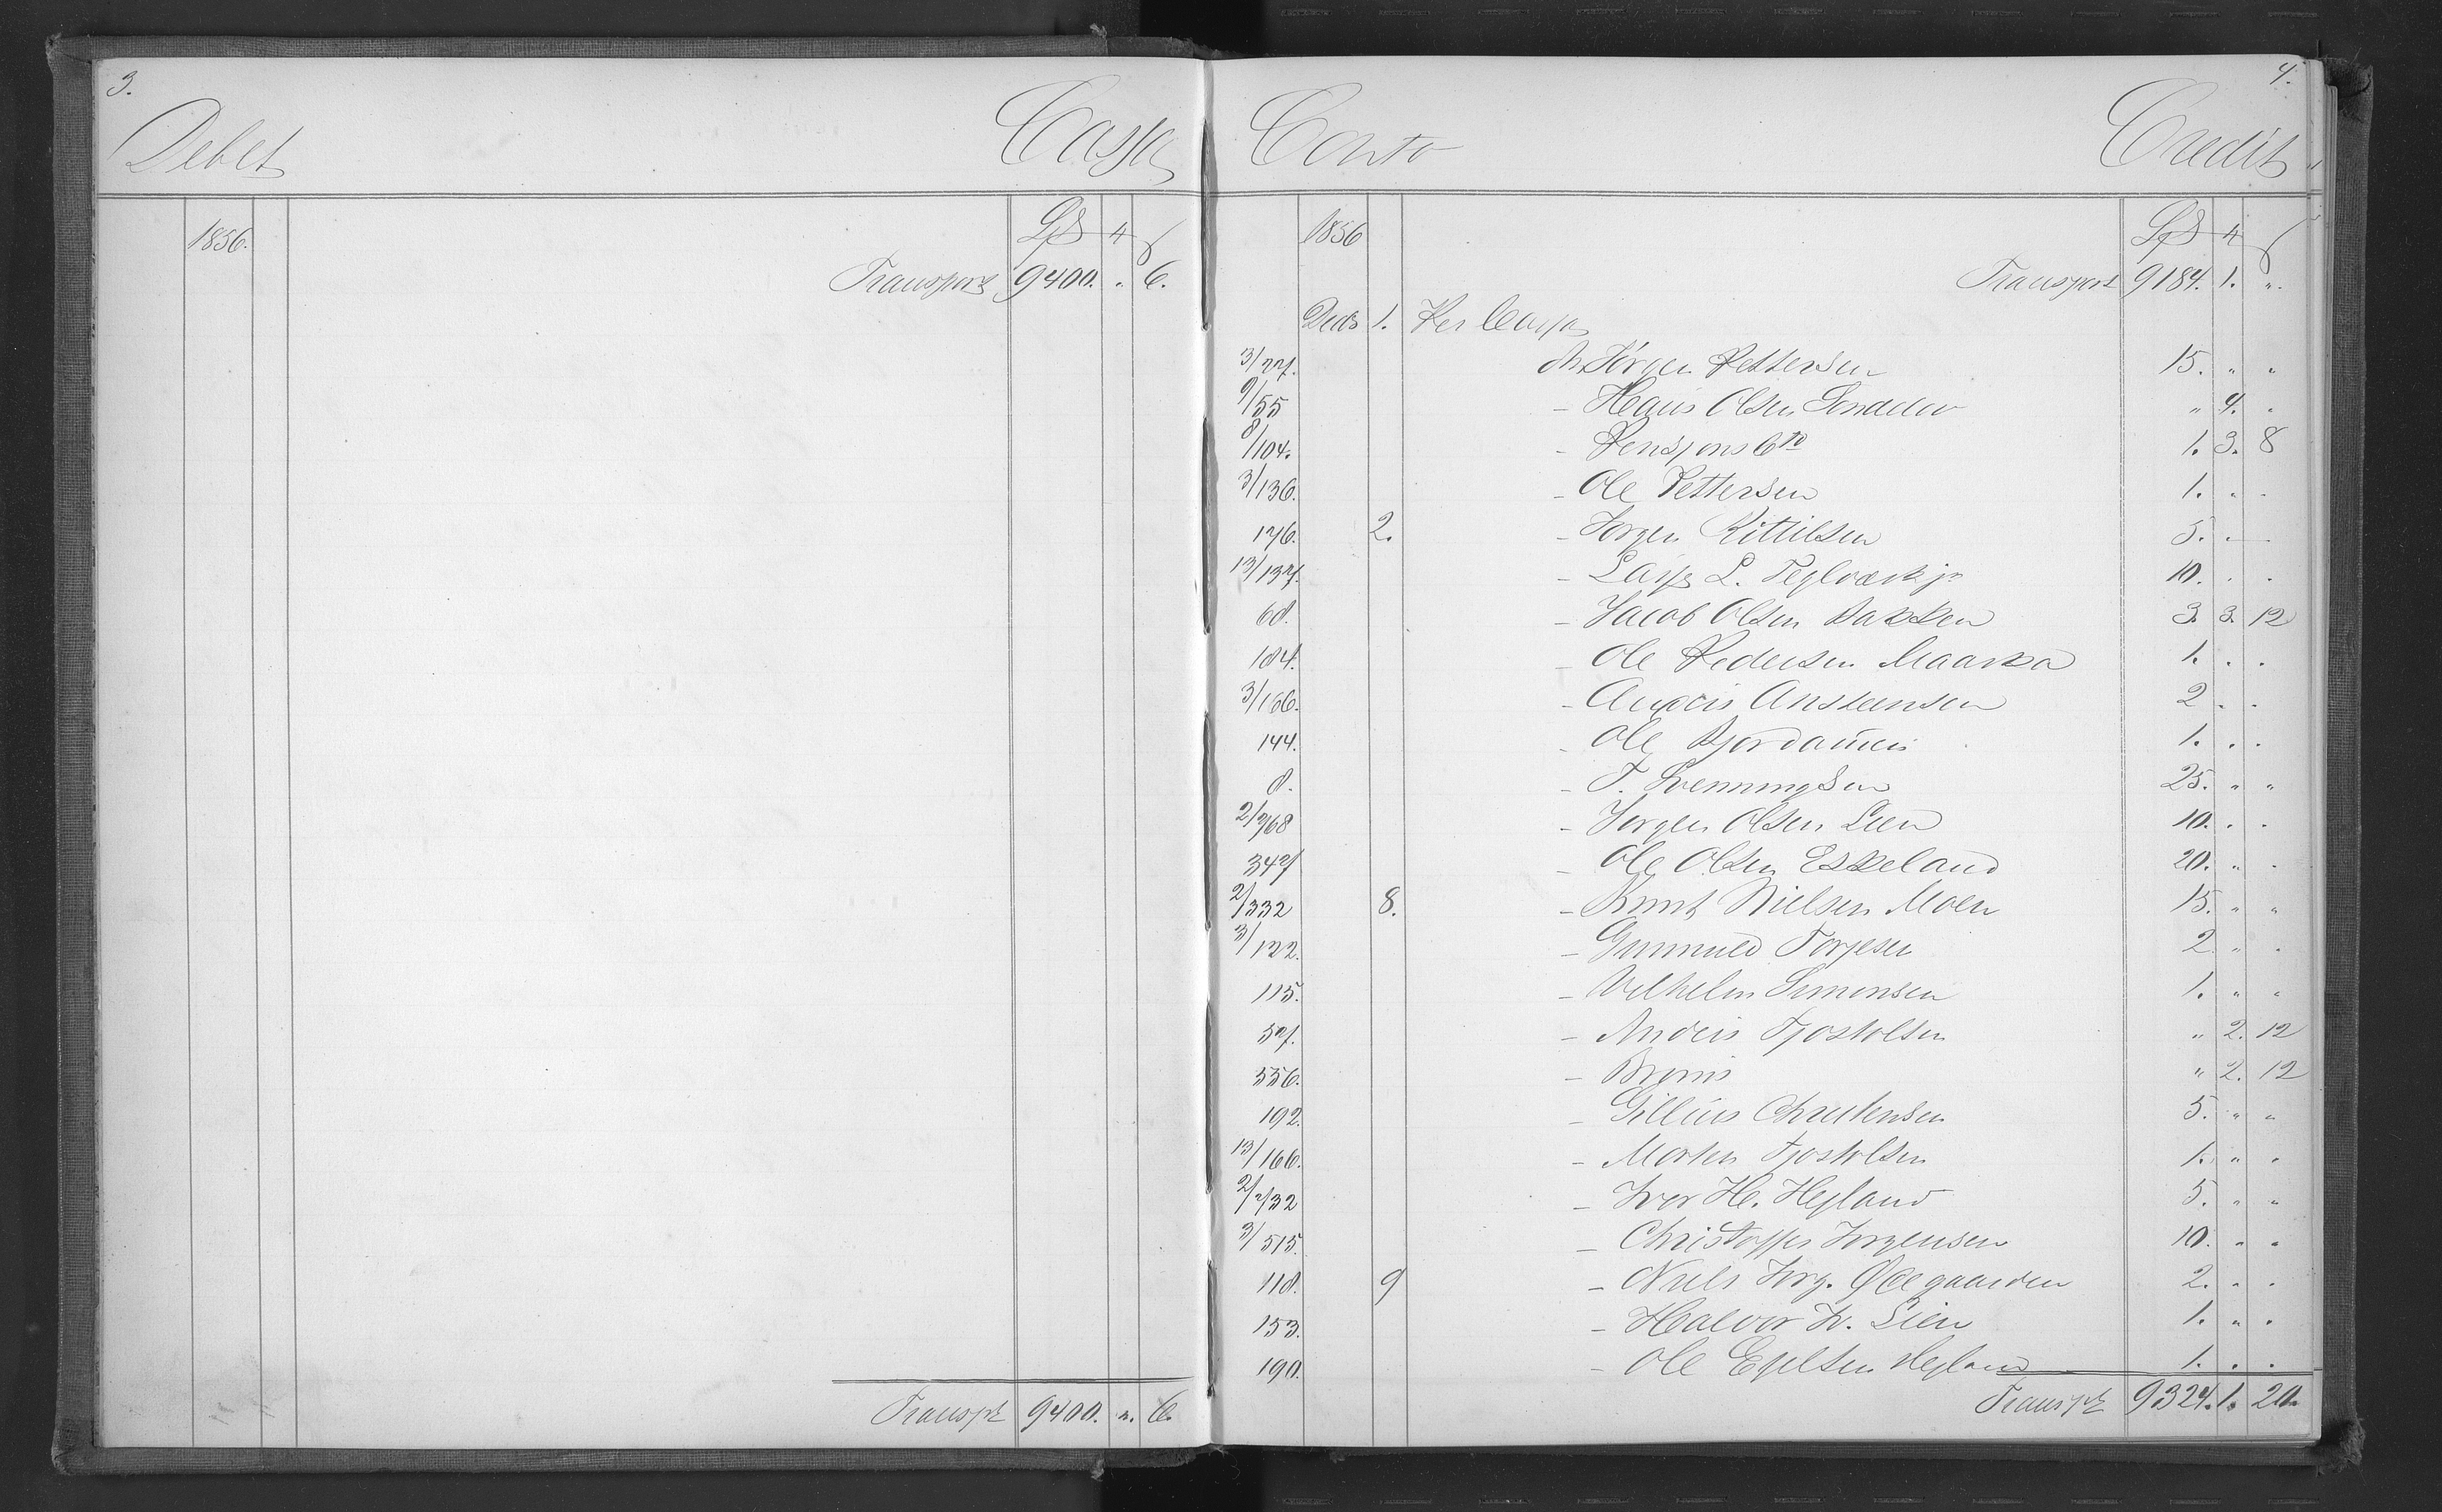 3.
Debet Cassa
1856. Spd # ß
Transport 9400. " 6.
Transpt 9400. ". 6.
4.
Conto Credit
1856 Spd # ß
Transport 9184. 1. ".
Decb 1. Per Cassa
3/27. An Jörgen Pettersen 15. " "
9/55 - Hans Olsen " 4. "
8/104. - Pensjons Cto 1. 3. 8
3/136. - Ole Pettersen 1. " "
176. 2. - Jorgen Kittilsen 5. " "
13/137. - Lars L. Teglværk jr 10. " "
68. - Jacob Olsen Bakken 3. 3. 12
184. - Ole Pedersen Maarka 1. " "
3/166. - Anders Ansteensen 2 " "
144. - Ole Bjordammen 1. " "
8. - T. Svenningsen 25. " "
2/768 - Jorgen Olsen Lien 10. " "
347 - Ole Olsen Eskeland 20. " "
2/332 8. - Knut Nielsen Moen 15. " "
3/122. - Gunnuld Torjesen 2 " "
115. - Vilhelm Simonsen 1. " "
57. - Anders Tjostolsen " 2. 12
556. - " 2. 12
192. - Gillius Christensen 5. " "
13/166. - Morten Tjostolsen 1. " "
2/732 - Iver H. Hegland 5. " "
3/515. - Christoffer Jorgensen 10. " "
118. 9 - Niels Jorg. Ødegaarden 2. " "
153. - Halvor Lien 1. " "
190. - Ole Ejeltsen Hegland 1. " "
Transpt 9324. 1. 20.